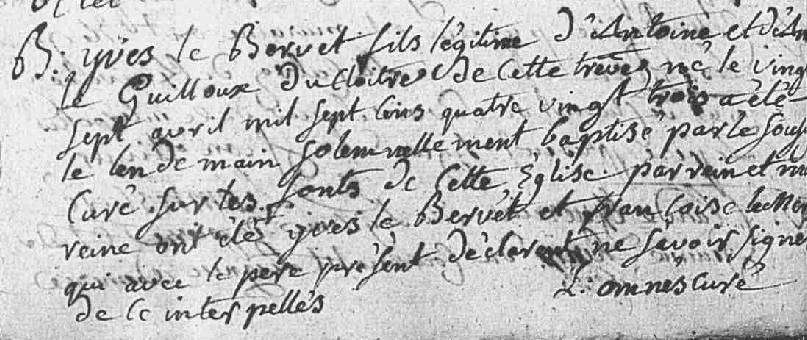 B: yves le Bervet fils légitime d'Antoine et d'An
le Guilloux du cloitre de cette trève né le ving
sept avril mil sept cens quatre vingt trois a été
le lendemain solemnellement baptisé par le sous
curé sur les fonts de cette église parrein et ma
reine ont été yves le Bervet et francoise le
qui avec le pere présent déclarent ne sçavoir signe
de ce interpellés L: omnès curé